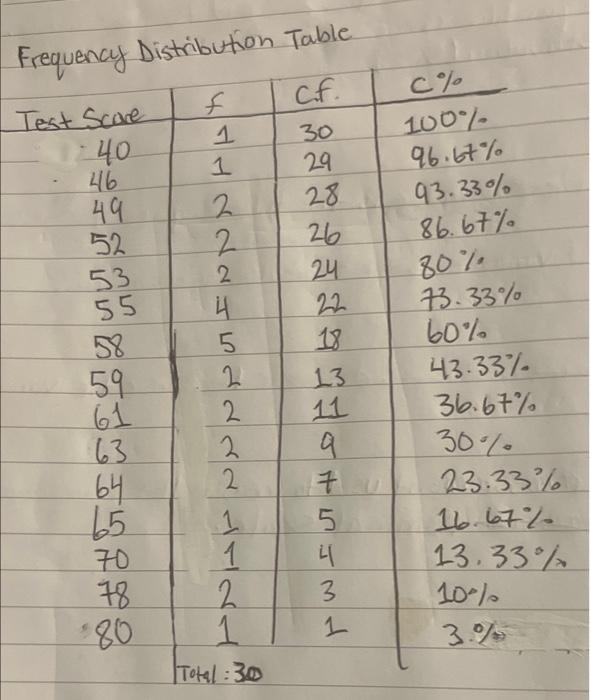 Frequency Distribution Table
Test Score f C.f. C%
40 1 30 100%
46 1 29 96.67%
49 2 28 93.33%
52 2 26 86.67%
53 2 24 80%
55 4 22 73.33%
58 5 18 60%
59 2 13 43.33%
61 2 11 36.67%
63 2 9 30%
64 2 7 23.33%
65 1 5 16.67%
70 1 4 13.33%
78 2 3 10%
80 1 1 3.%
Total : 30